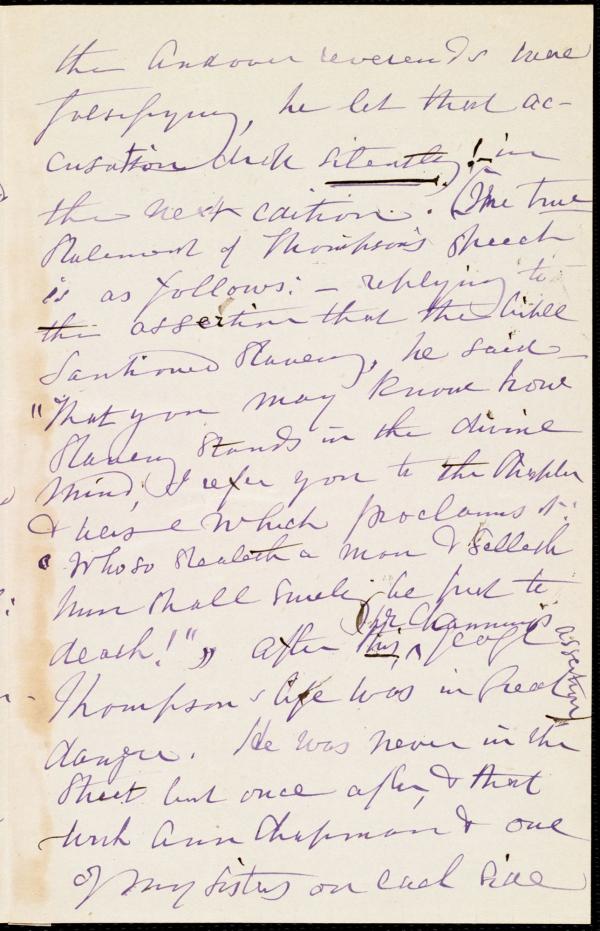 the Andover reverends were
falsifying, he let that ac-
cusation drop silently! in
the next edition. (The true
statement of Thompson's speech
is as follows: - replying to
the assertion that the bible
Sanctioned Slavery, he said -
"That you may know how
Slavery stands in the divine
mind, I refer you to the Chapter
& verse which proclaims it:
"Whoso stealeth a man & selleth
him shall surely be put to
death!"" after this, Dr Channing's assertion
George
Thompson's life was in great
danger. He was never in the
Street but once after, & that
with Ann Chapman & one
of my sisters on each side